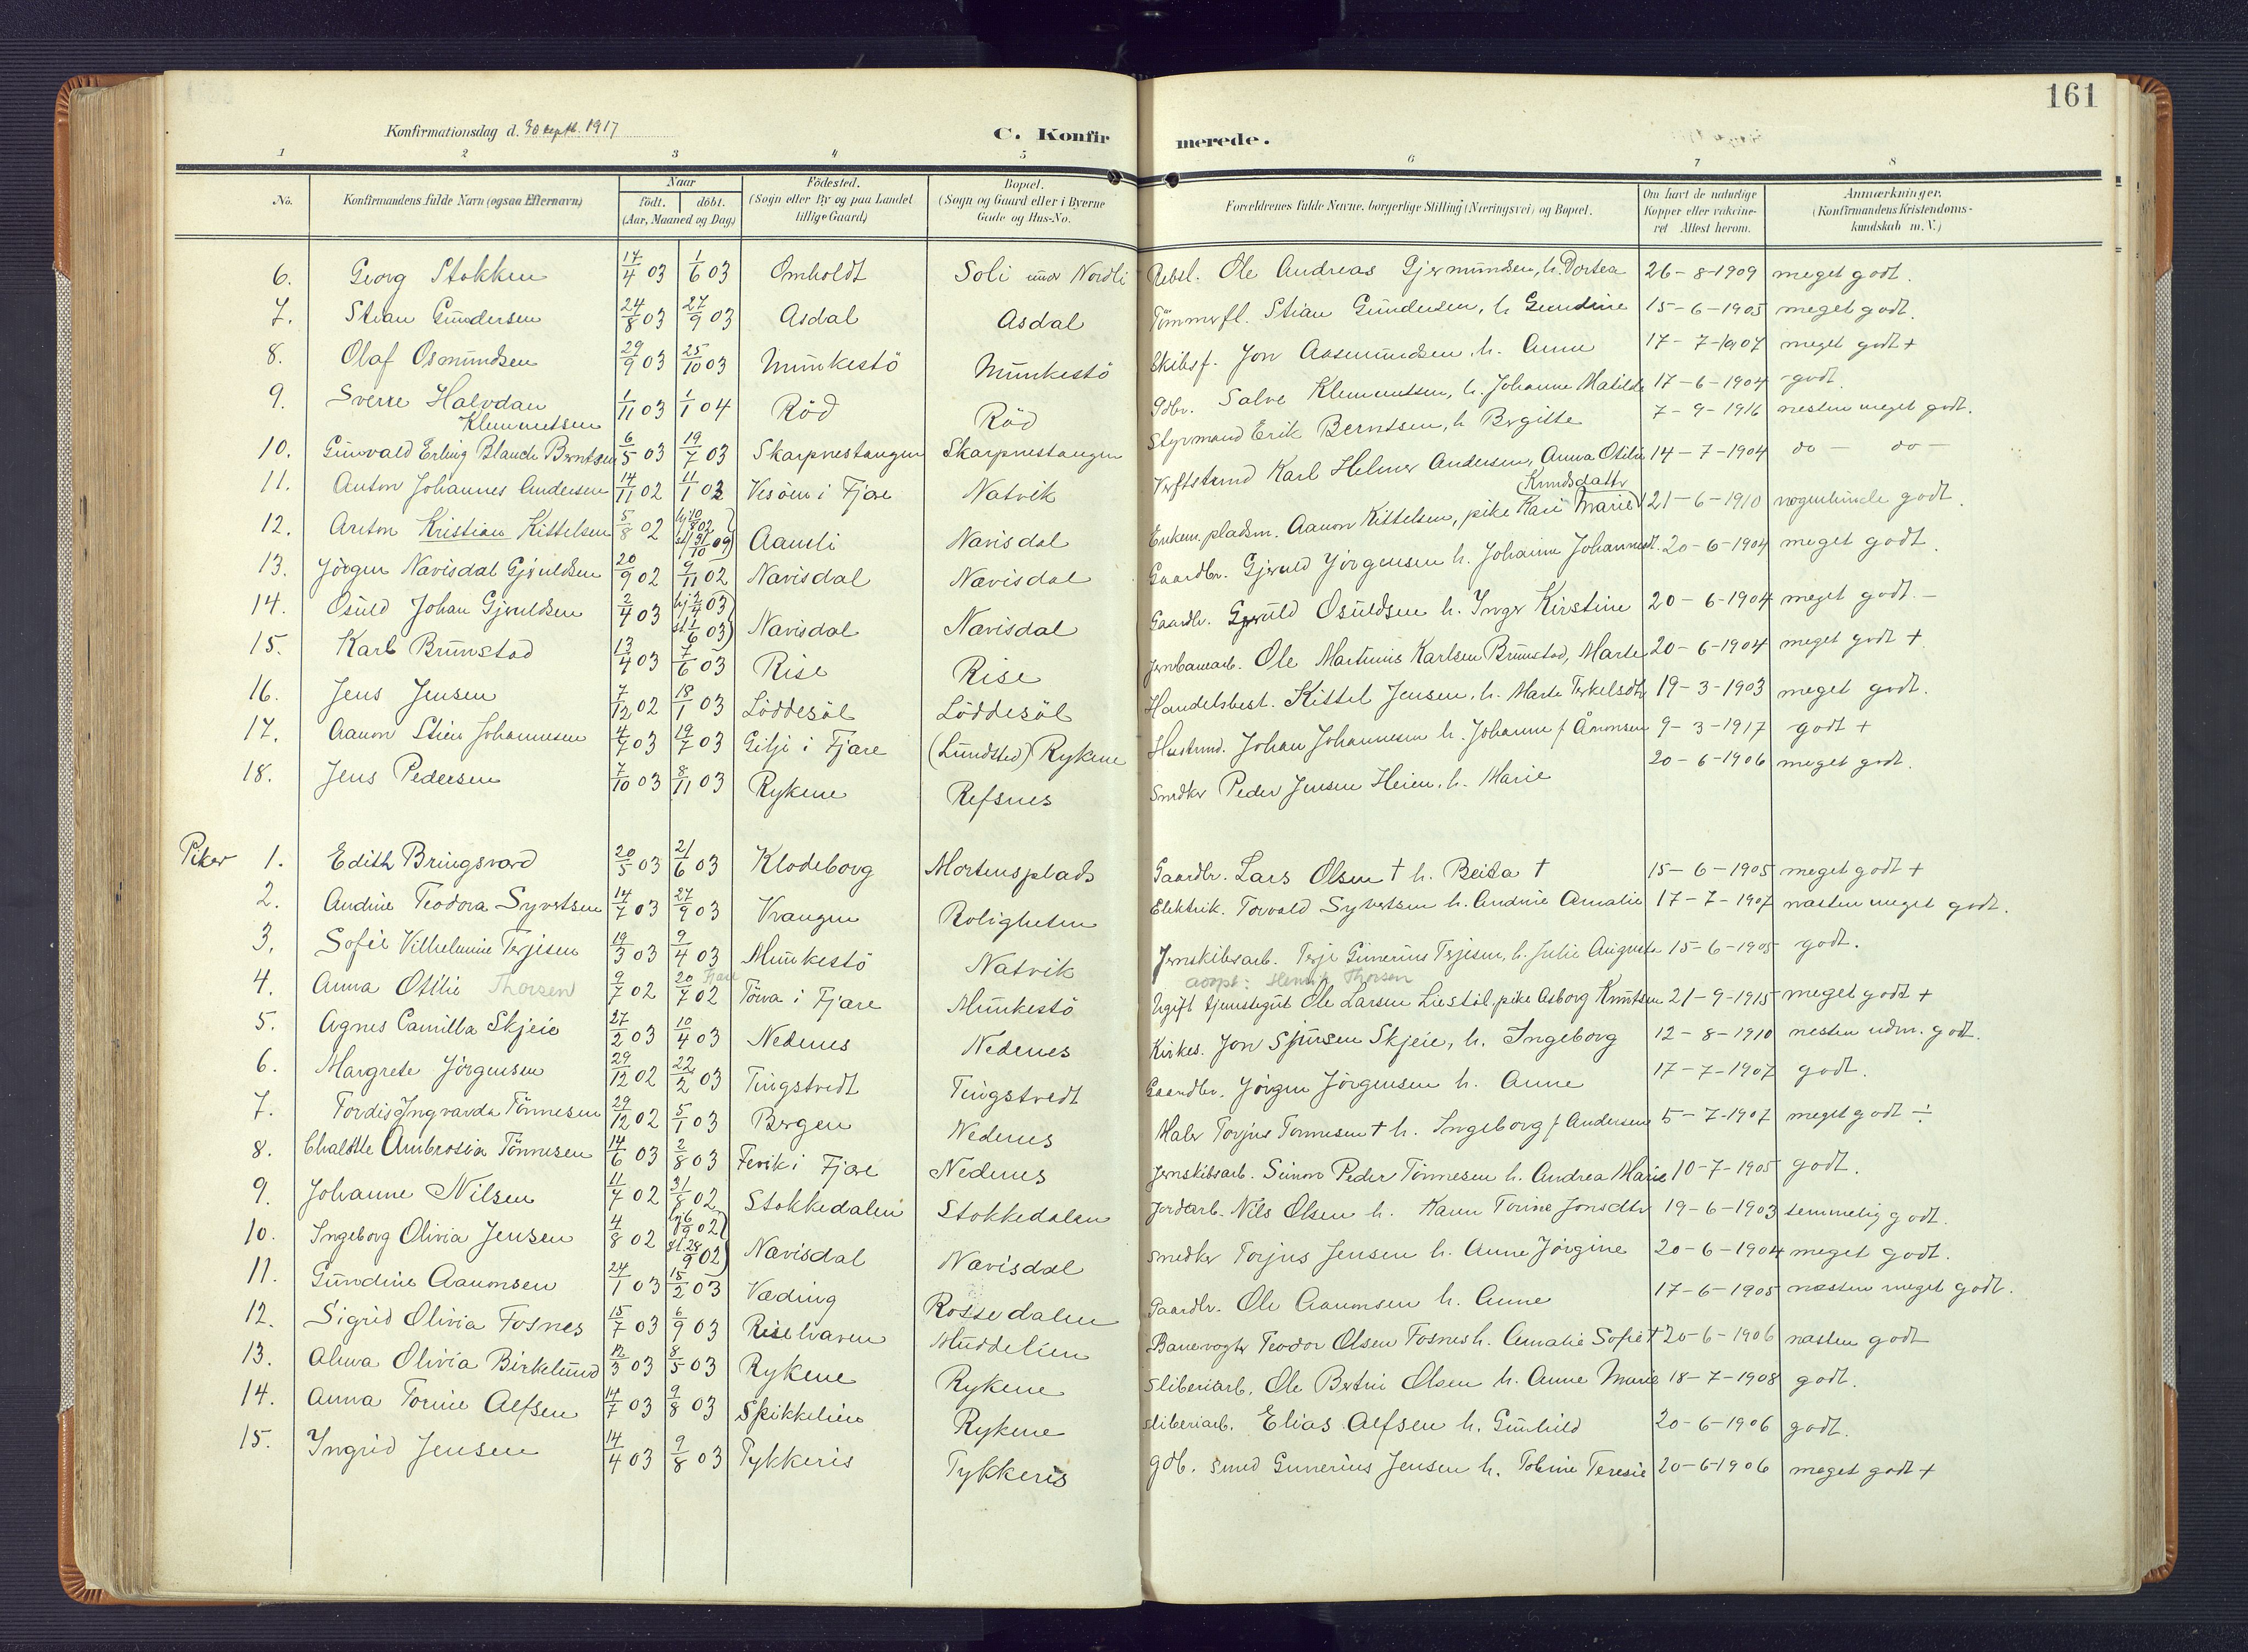 161
Konfirmationsdag d. 30 septb. 1917
C. Konfirmerede.
1 2 3 4 5 6 7 8
No. Konfirmandens fulde Navn (ogsaa Efternavn) Naar födt. döbt. (Aar, Maaned og Dag) Födested. (Sogn eller By og paa Landet tillige Gaard) Bopæl. (Sogn og Gaard eller i Byerne Gade og Hus-No. Forældrenes fulde Navne, borgerlige Stilling (Næringsvei) og Bopæl. Om havt de naturlige Kopper eller vakcineret Attest herom. Anmærkninger. (Konfirmandens Kristendomskundskab m. V.)
6. Georg Stokken 14/4 03 1/6 03 Omholdt Soli under Nordli Ole Andreas Gjermundsen, h. Dortea 26-8-1909 meget godt.
7. Stian Gundersen 24/8 03 27/9 03 Asdal Asdal Tömmerfl. Stian Gundersen, h Gundine 15-6-1905 meget godt.
8. Olaf Osmundsen 29/9 03 25/10 03 Munkestö Munkestö Skibsf. Jon Aasmundsen, h. Anne 17-7-1907 meget godt +
9. Sverre Halvdan Klemmetsen 1/11 03 1/1 04 Röd Röd Gdbr. Salve Klemmetsen, h. Johanne Matilde 17-6-1904 godt.
10. Gunvald Erling Blanch Berntsen 6/5 03 19/7 03 Skarpnestangen Skarpnestangen Styrmand Erik Berntsen, h Birgitte 7-9-1916 nesten meget godt.
11. Anton Johannes Andersen 14/11 02 11/1 03 Vesöen i Fjære Natvik Karl Helmer Andersen, Anna Otilie 14-7-1904 do - do -
12. Anton Kristian Kittelsen 5/8 02 hj 10/8 02 st 31/10 09 Aamli Navisdal Enkem. pladsm. Aanon Kittelsen, pike Kari Marie Knudsdattr 21-6-1910 nogenlunde godt.
13. Jörgen Navisdal Gjeruldsen 20/9 02 9/11 02 Navisdal Navisdal Gaardbr. Gjeruld Jörgensen h. Johanne Johannesd. 20-6-1904 meget godt.
14. Osuld Johan Gjeruldsen 2/4 03 hj 2/4 03 st. 1/6 03 Navisdal Navisdal Gaardbr. Gjeruld Osuldsen h. Inger Kirstine 20-6-1904 meget godt. -
15. Karl Brunstad 13/4 03 7/6 03 Rise Rise Jernbanearb. Ole Martinius Karlsen Brunstad, Marte 20-6-1904 meget godt +
16. Jens Jensen 7/12 02 18/1 03 Löddesöl Löddesöl Handelsbest. Kittel Jensen, h. Marte Terkelsdtr 19-3-1903 meget godt.
17. Aanon Stien Johannesen 4/7 03 19/7 03 Gilje i Fjære (Lundsted) Rykene Johan Johannesen h. Johanne f Ånonsen 9-3-1917 godt +
18. Jens Pedersen 7/10 03 8/11 03 Rykene Refsnes Snedker Peder Jensen Heien, h. Marie 20-6-1906 meget godt.
Piker 1. Edith Bringsværd 20/5 03 21/6 03 Klodeborg Mortensplads Gaardbr. Lars Olsen † h. Beita † 15-6-1905 meget godt +
2. Andine Teodora Syvertsen 14/7 03 27/9 03 Vrangen Roligheten Elektrik. Torvald Syvertsen h. Andine Amalie 17-7-1907 næsten meget godt.
3. Sofie Vilhelmine Terjesen 19/3 03 9/4 03 Munkestö Natvik Jernskibsarb. Terje Gunerius Terjesen, h. Julie Auguste 15-6-1905 godt.
4. Anna Otilie Thorsen 9/7 02 20/7 02 Fjære Törva i Fjære Munkestö adopt: Henrik Thorsen
Ugift tjenestegut Ole Larsen Liestöl, pike Asborg Knutsen 21-9-1915 meget godt +
5. Agnes Camilla Skjeie 27/2 03 10/4 03 Nedenes Nedenes Kirkes. Jon Sjursen Skjeie, h. Ingeborg 12-8-1910 nesten udm. godt.
6. Margrete Jörgensen 29/12 02 22/2 03 Tingstvedt Tingstvedt Gaardbr. Jörgen Jörgensen h. Anne 17-7-1907 godt.
7. Tordis Ingvarda Tönnesen 29/12 02 5/1 03 Bergen Nedenes Maler Torjus Tönnesen † h. Ingeborg f Andersen 5-7-1907 meget godt ÷
8. Chalotte Ambrosia Tönnesen 14/6 03 2/8 03 Fevik i Fjære Nedenes Jernskibsarb. Simon Peder Tönnesen h. Andrea Marie 10-7-1905 godt.
9. Johanne Nilsen 11/7 02 31/8 02 Stokkedalen Stokkedalen Jordarb. Nils Olsen h. Karen Torine Jonsdtr 19-6-1903 temmelig godt.
10. Ingeborg Olivia Jensen 4/8 02 hj 6/9 02 st. 28/9 02 Navisdal Navisdal Snedker Torjus Jensen h. Anne Jörgine 20-6-1904 meget godt.
11. Gundine Aanonsen 24/1 03 15/2 03 Væding Rossedalen Gaardbr. Ole Aanonsen h. Anne 17-6-1905 næsten meget godt.
12. Sigrid Olivia Fosnes 15/7 03 6/9 03 Risehaven Muddelien Banevogter Teodor Olsen Fosnes h. Amalie Sofie † 20-6-1906 næsten godt
13. Alma Olivia Birkelund 12/3 03 8/5 03 Rykene Rykene Sliberiarb. Ole Bertin Olsen h. Anne Marie 18-7-1908 godt.
14. Anna Torine Alfsen 14/7 03 9/8 03 Spikkelien Rykene sliberiarb. Elias Alfsen h. Gunhild 20-6-1906 godt.
15. Ingrid Jensen 14/4 03 9/8 03 Tykkeris Tykkeris gdb. smed Gunerius Jensen h. Tobine Teresie 20-6-1906 meget godt +